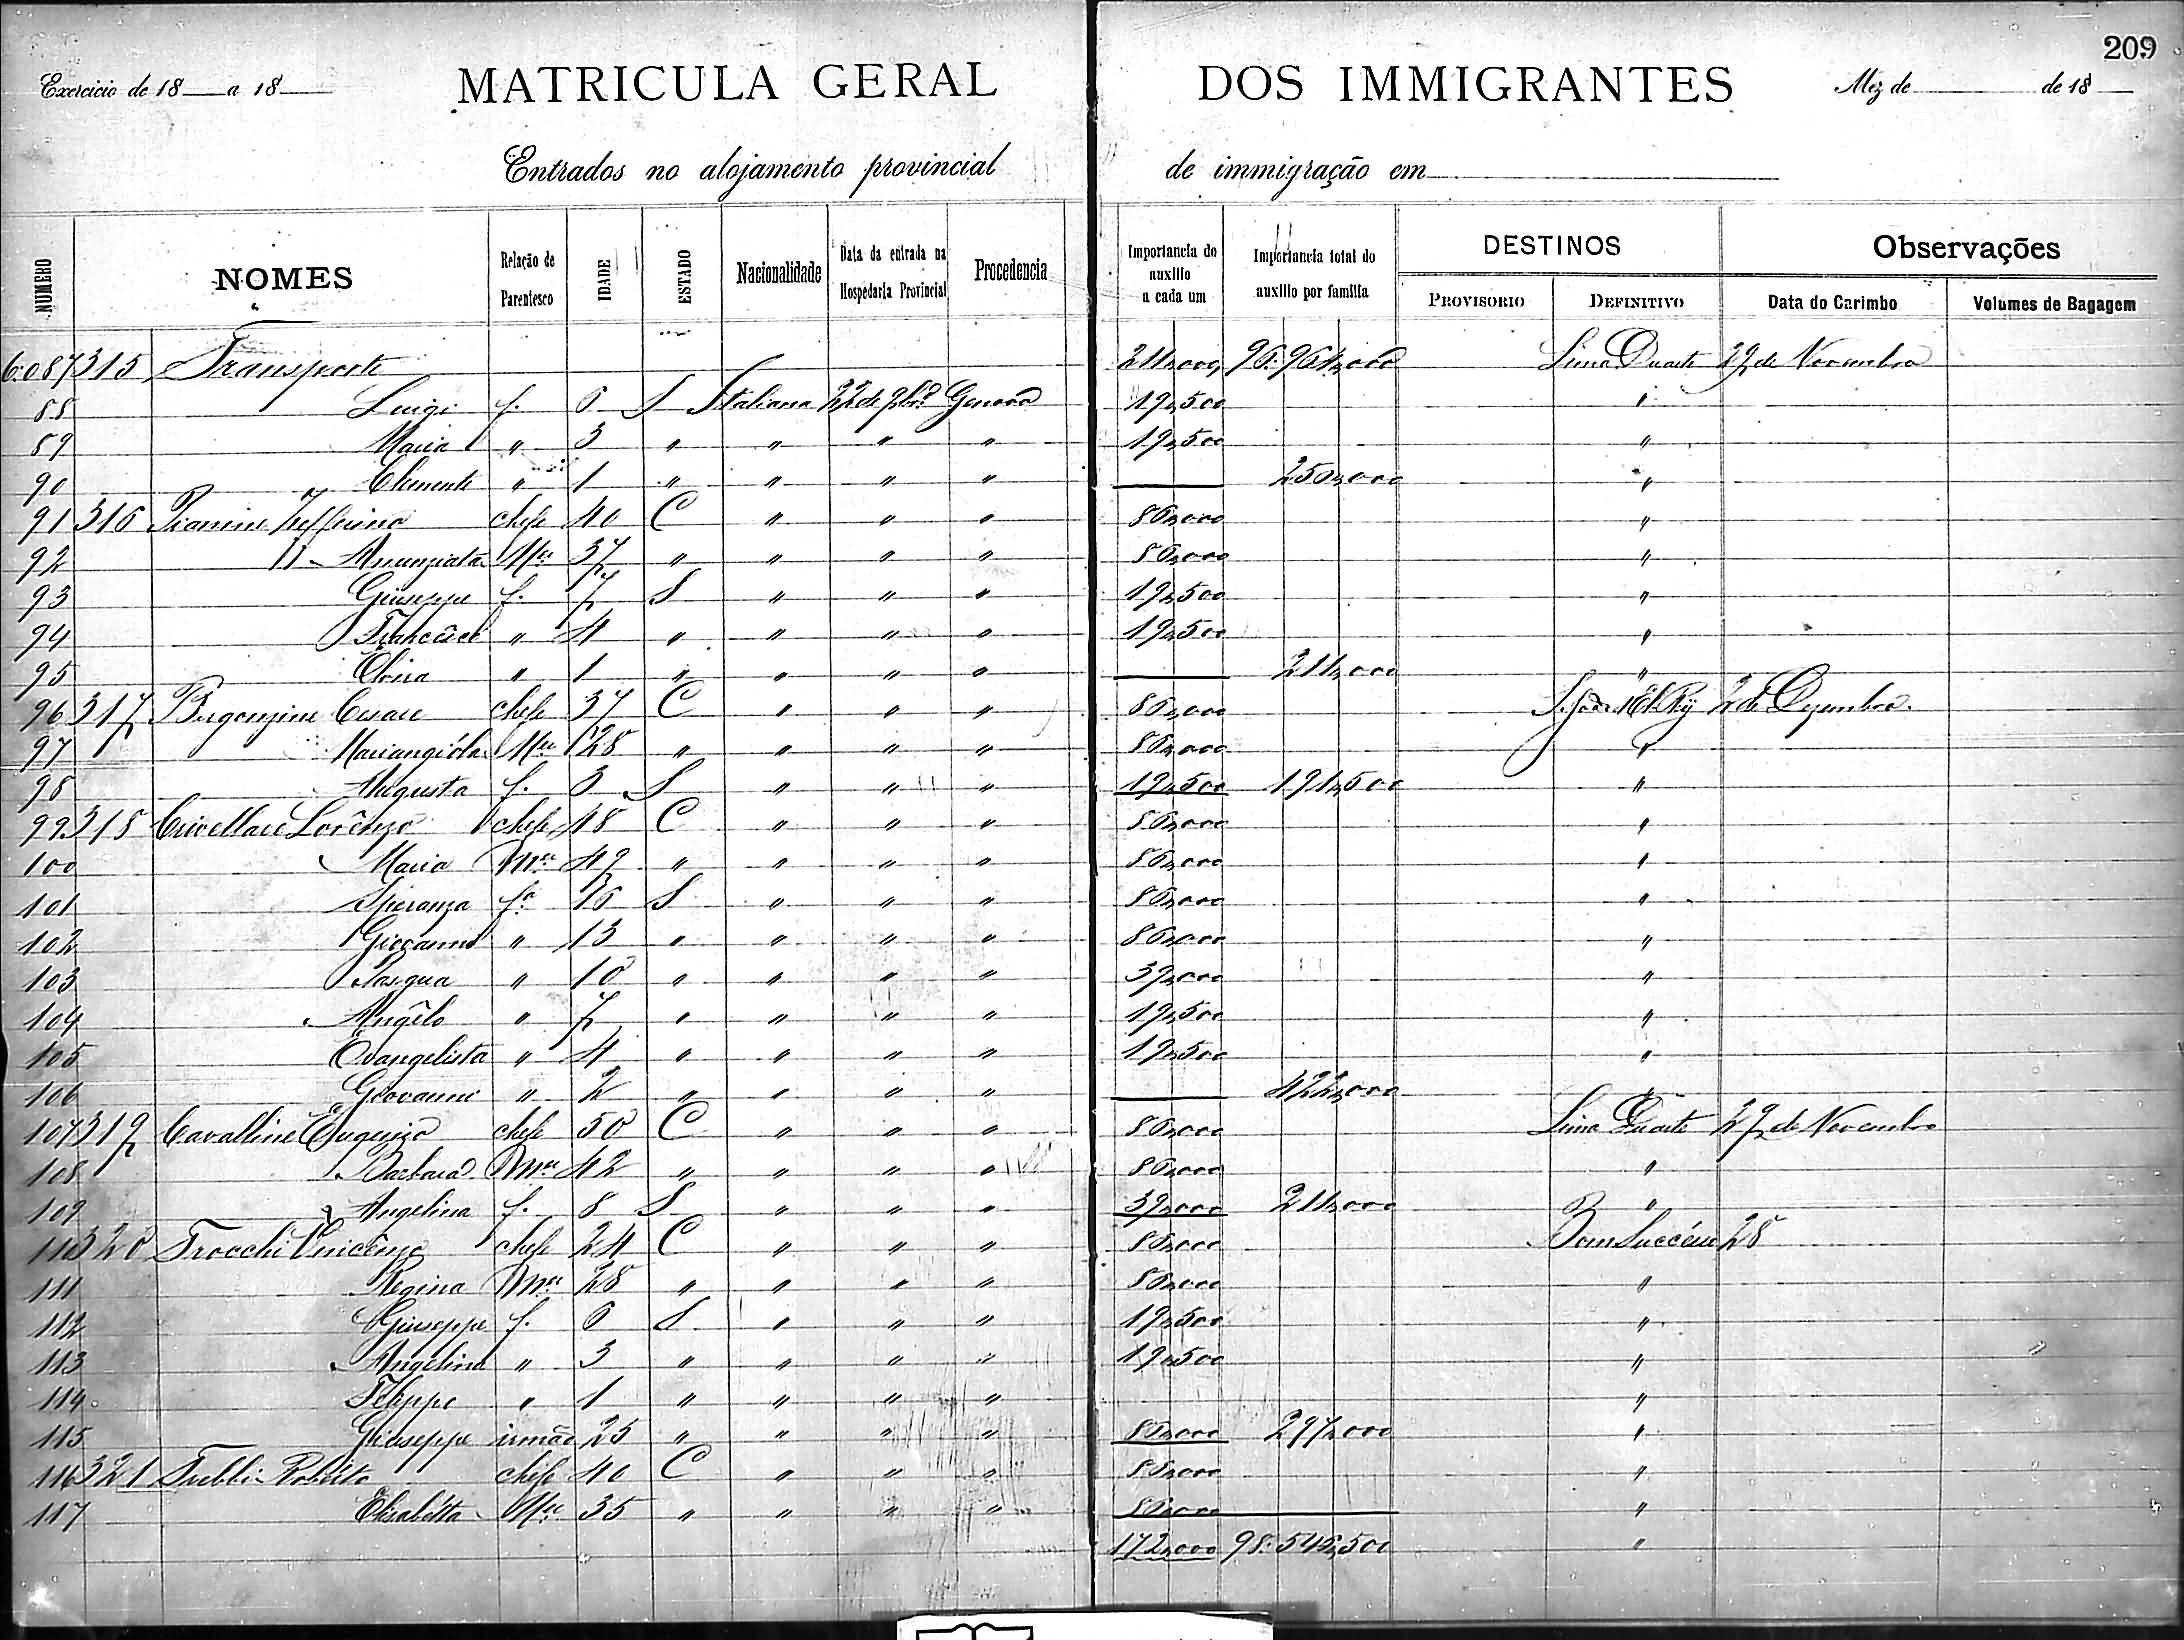 209
Exercicio de 18 a 18 MATRICULA GERAL DOS IMMIGRANTES Mez de de 18
Entrados no alojamento provincial de immigração em
NUMERO NOMES Relação de Parentesco IDADE ESTADO Nacionalidade Data da entrada na Hospedaria Provincial Procedencia Importancia do auxilio a cada um Importancia total do auxilio por familia DESTINOS PROVISORIO DEFINITIVO Observações Data do Carimbo Volumes de Bagagem
6:087 315 Transporte 211,000 96:964,000 Lima Duarte 29 de Novembro
88 Luigi f. 6 S Italiana 22 de 9bro Genova 19,500 "
89 Maria " 3 " " " " 19,500 "
90 Clemente " 1 " " " " 250,000 "
91 316 Pianini Zefferino chefe 40 C " " " 86,000 "
92 Annunziata Mer 37 " " " " 86,000 "
93 Giuseppe f. 7 S " " " 19,500 "
94 Francisco " 4 " " " " 19,500 "
95 " 1 " " " " 211,000 "
96 317 Bergonzine Cesare chefe 37 C " " " 86,000 S. João d'El Rey 2 de Dezembro
97 Mariangióla Mer 28 " " " " 86,000 "
98 Augusta f. 3 S " " " 19,500 191,500 "
99 318 Crivellare Lorenzo chefe 48 C " " " 86,000 "
100 Maria Mer 42 " " " " 86,000 "
101 Speranza fa 16 S " " " 86,000 "
102 Giovanni " 13 " " " " 86,000 "
103 Pasqua " 10 " " " " 39,000 "
104 Angêlo " 7 " " " " 19,500 "
105 Evangelista " 4 " " " " 19,500 "
106 Giovanni " 2 " " " " 422,000 "
107 319 Cavalline Eugenizo chefe 50 C " " " 86,000 Lima Duarte 29 de Novembro
108 Barbara Mer 42 " " " " 86,000 "
109 Angelina f. 8 S " " " 39,000 211,000 "
110 320 Trocchi chefe 24 C " " " 86,000 Bom Successo 28
111 Regina Mer 28 " " " " 86,000 "
112 Giuseppe f. 6 S " " " 19,500 "
113 Angelina " 3 " " " " 19,500 "
114 Felippe " 1 " " " " "
115 Giuseppe irmão 25 " " " " 86,000 297,000 "
116 321 Roberto chefe 40 C " " " 86,000 "
117 Elisabétta Mer 35 " " " " 86,000 "
172,000 98:546,500 "